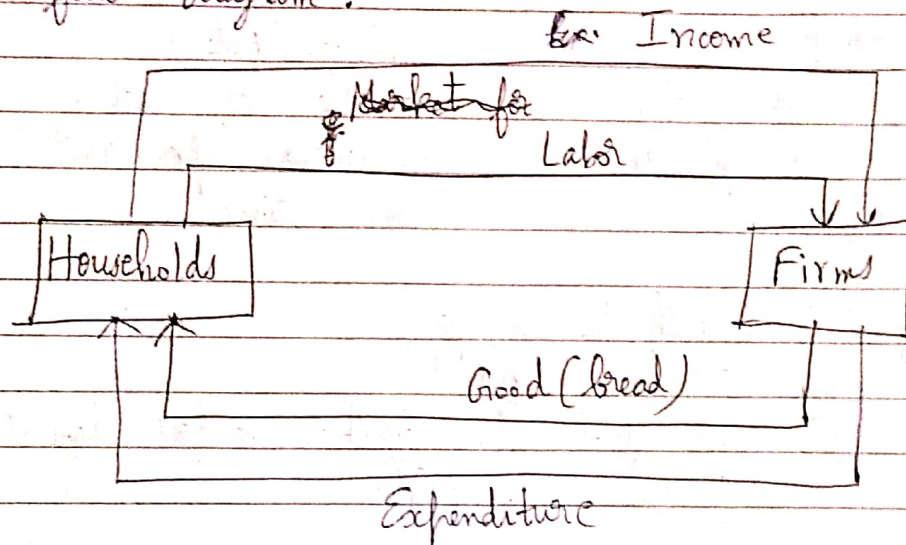 diagram.
Income
Market for
Labor
Households
Firms
Good (bread)
Expenditure